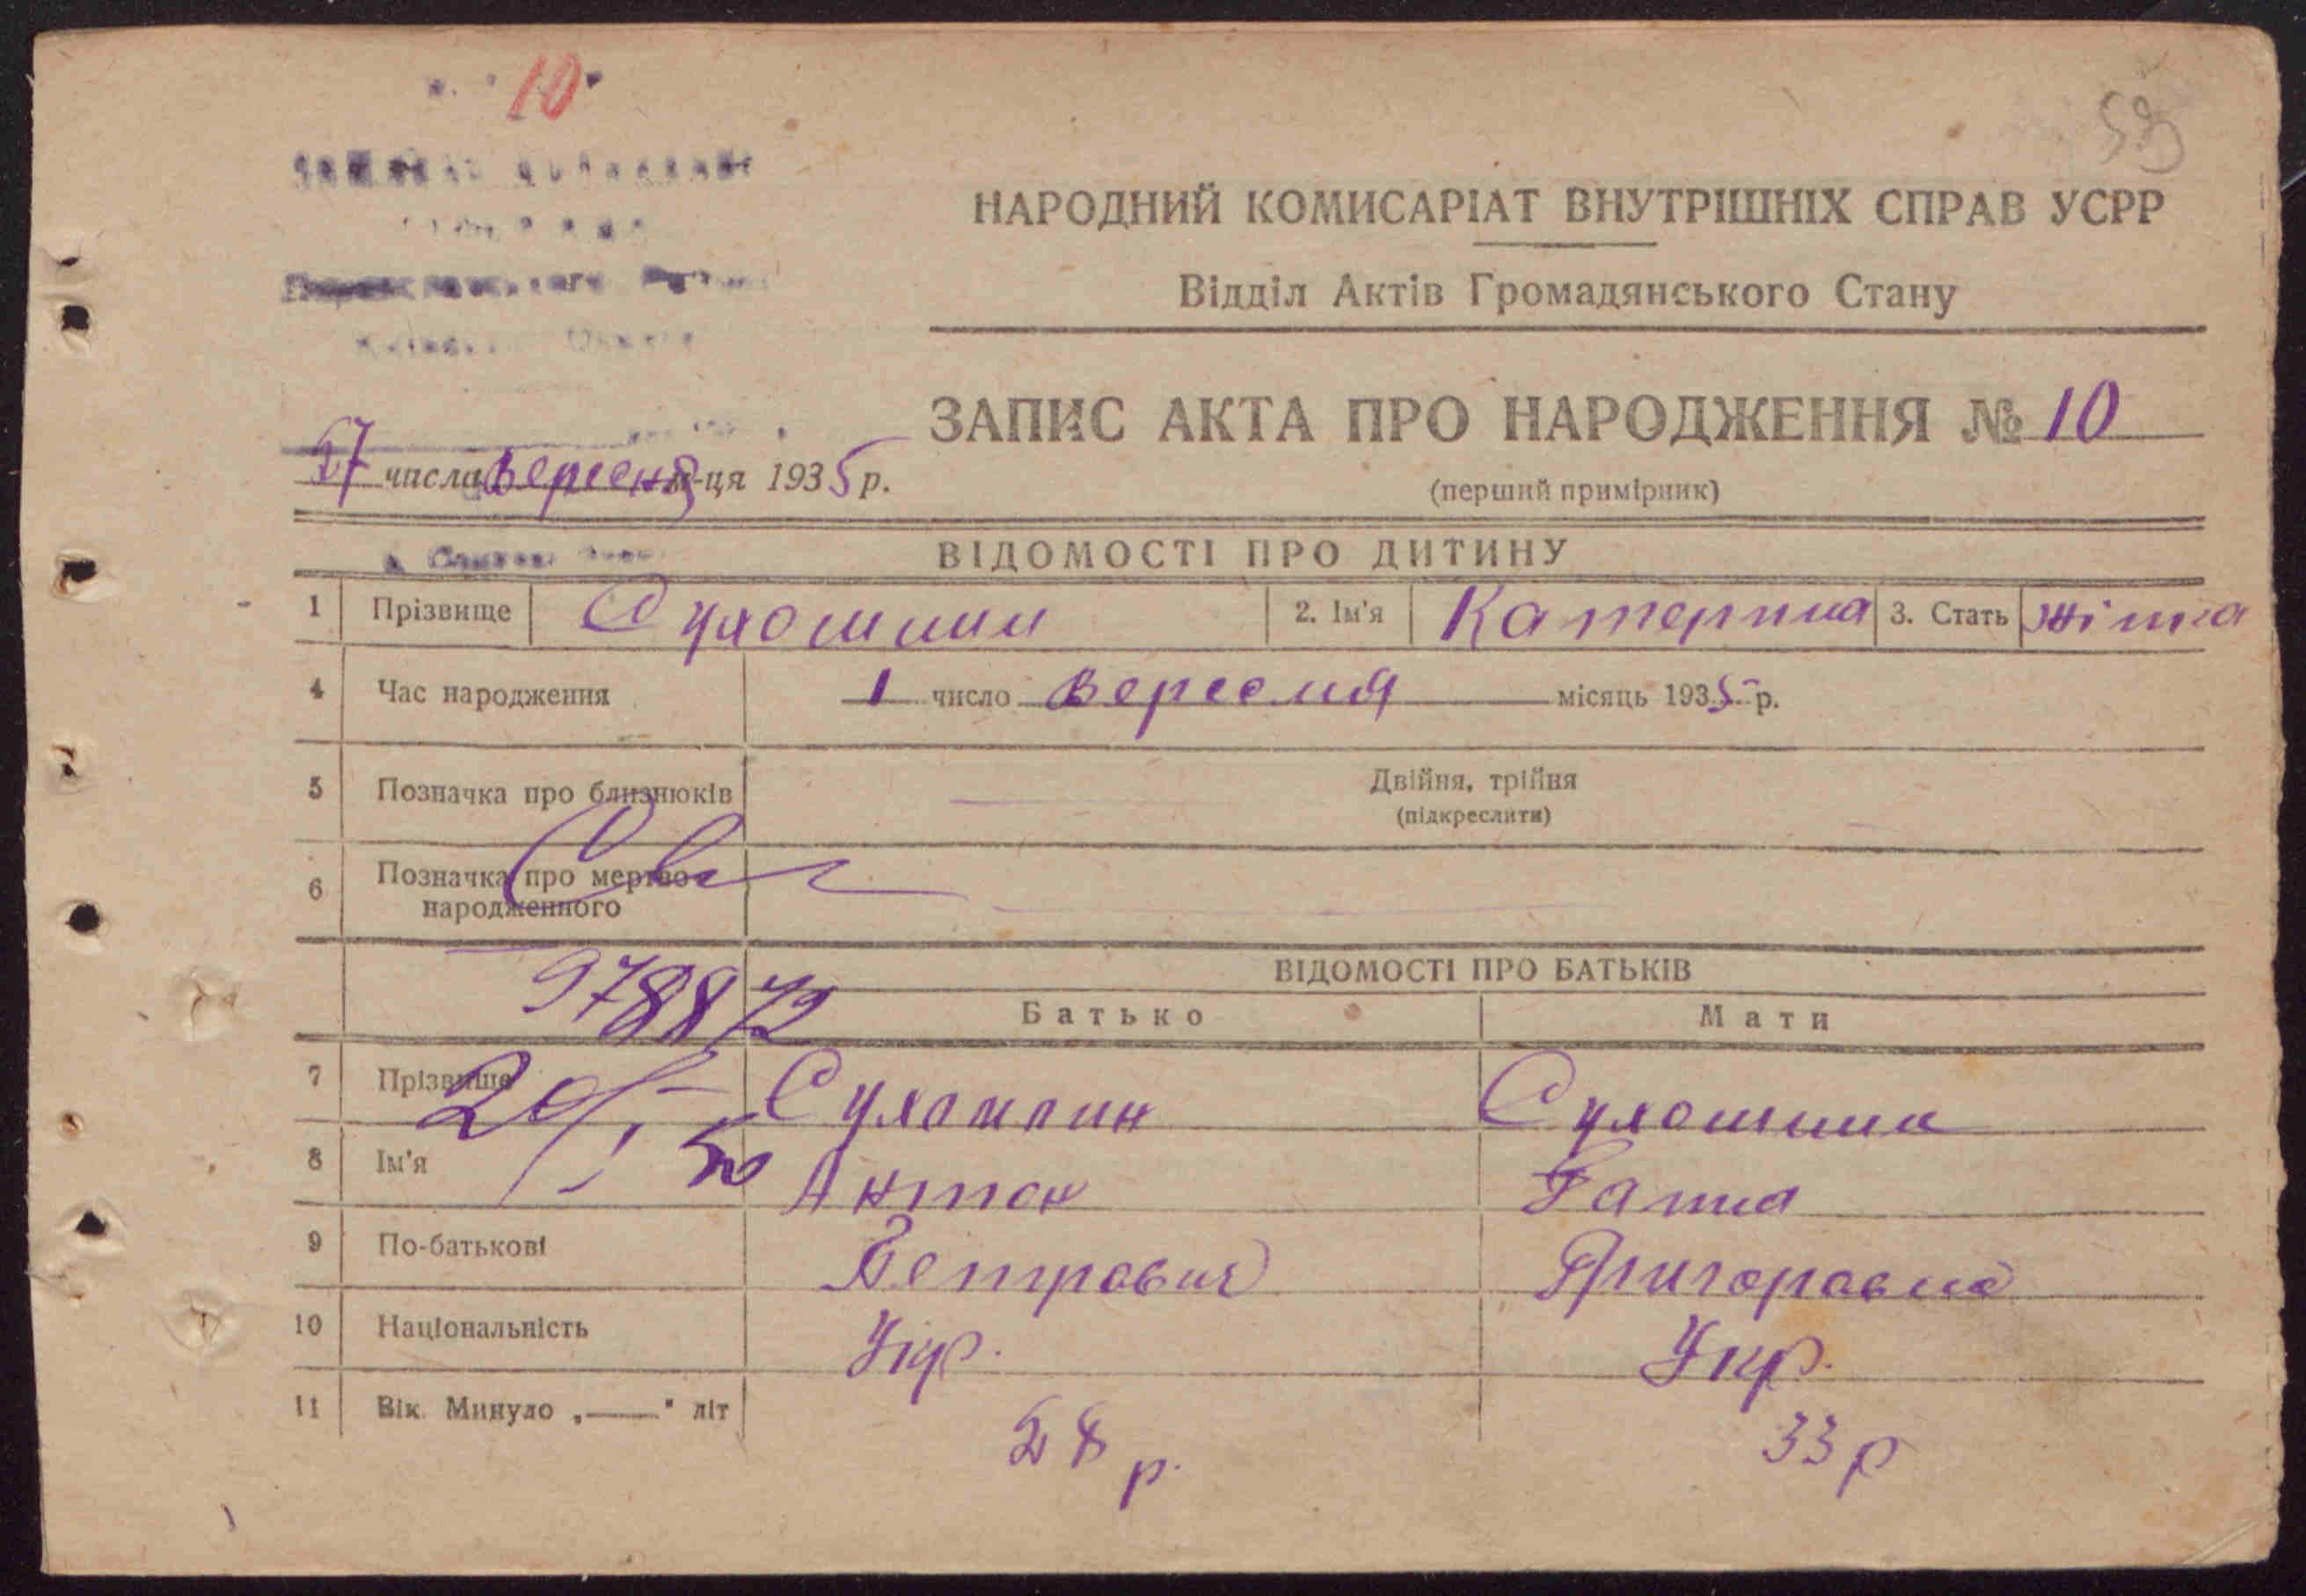 10
59
НАРОДНИЙ КОМИСАРІАТ ВНУТРІШНІХ СПРАВ УСРР
Відділ Актів Громадянського Стану
ЗАПИС АКТА ПРО НАРОДЖЕННЯ № 10
27 числа вересня м-ця 1935 р.
(перший примірник)
ВІДОМОСТІ ПРО ДИТИНУ
1 Прізвище Сухошин 2. Ім'я Катерина 3. Стать жіноча
4 Час народження 1 число вересня місяць 1935 р.
5 Позначка про близнюків Двійня, трійня
(підкреслити)
6 Позначка про мертво-
народженного
ВІДОМОСТІ ПРО БАТЬКІВ
978872
Батько Мати
7 Прізвище Сухошин Сухошин
8 Ім'я Антон Ганна
9 По-батькові Петрович Григоровна
10 Національність Укр. Укр.
11 Вік. Минуло „—" літ 28 р. 33 р